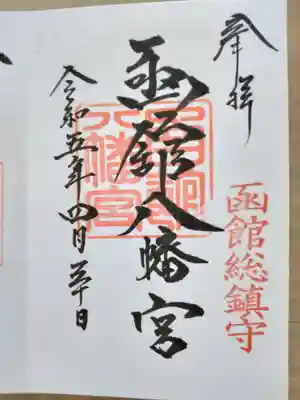 奉拝
函館総鎮守
函館八幡宮
函館
八幡宮
令和五年四月三十日